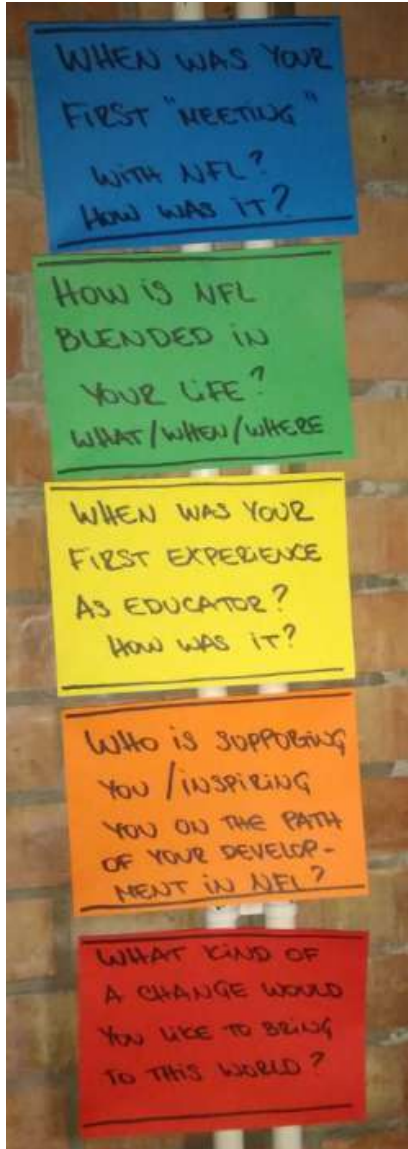 WHEN WAS YOUR
FIRST "MEETING"
WITH NFL?
HOW WAS IT?
HOW IS NFL
BLENDED IN
YOUR LIFE?
WHAT/WHEN/WHERE
WHEN WAS YOUR
FIRST EXPERIENCE
AS EDUCATOR?
HOW WAS IT?
WHO IS SUPPORING
YOU / INSPIRING
YOU ON THE PATH
OF YOUR DEVELOP-
MENT IN NFL?
WHAT KIND OF
A CHANGE WOULD
YOU LIKE TO BRING
TO THIS WORLD?